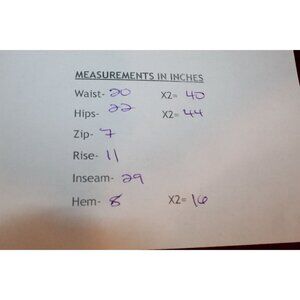 MEASUREMENTS IN INCHES
Waist- 20 X2= 40
Hips- 22 X2= 44
Zip- 7
Rise- 11
Inseam- 29
Hem- 8 X2= 16